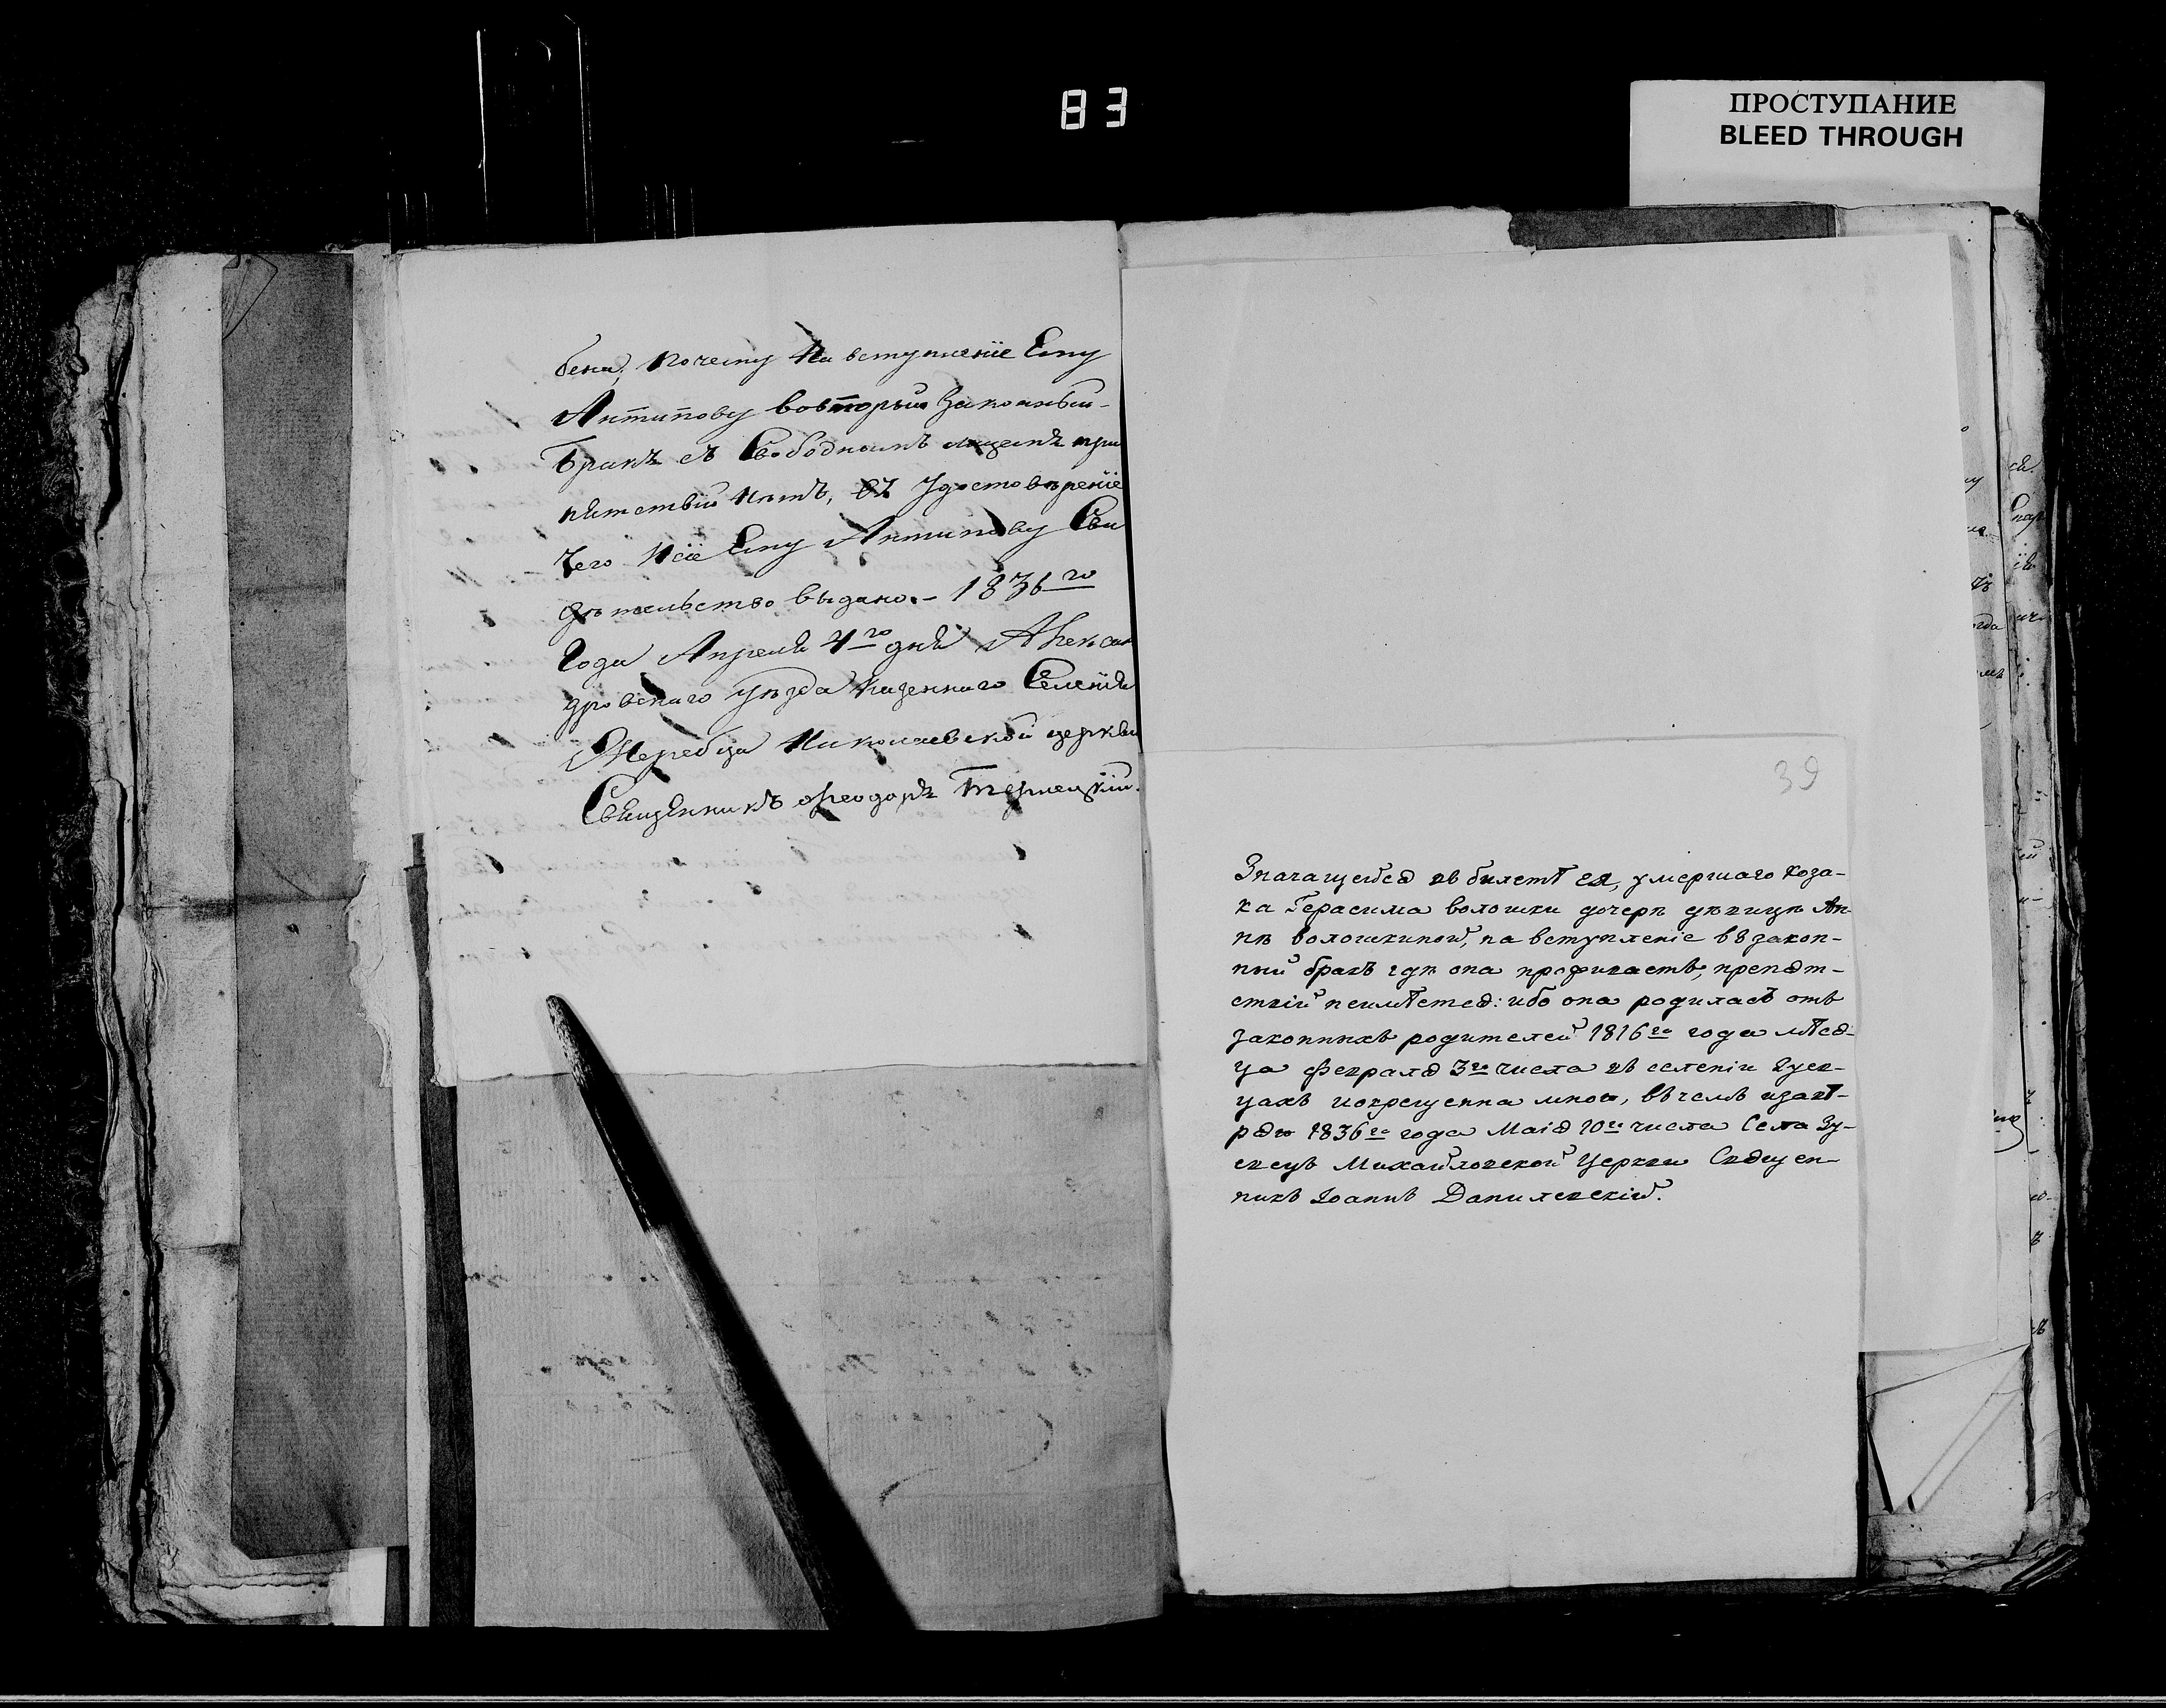 83
ПРОСТУПАНИЕ
BLEED THROUGH
бена; почему на вступленіе Ему
Антипову вовторый законный
бракъ съ Свободнымъ лицемъ пре
пятствій нѣтъ, въ удостовѣреніе
чего и сіе Ему Антипову Сви
дѣтельство выдано. – 1836го
Года Апреля 4го дня Алексан
дровскаго уѣзда казеннаго Селенія
Жеребца Николаевской церкви
Священникъ Ѳеодоръ
39
Значащейся въ билетѣ ея, умершаго коза-
ка Герасима волошки дочерѣ дѣвицѣ Ан-
нѣ волошкиной, на вступленіе въ закон-
ный бракъ гдѣ она пріищетъ, препят-
ствій неимѣется: ибо она родилась отъ
законныхъ родителей 1816го года мѣся-
ца февраля 3го числа въ селеніи Зуев-
цахъ и окрещенна мною, въ чемъ и завѣ-
ряю 1836го года Маія 10го числа Села Зу-
евецъ Михайловской Церкви Священ-
никъ Іоаннъ Данилевскій.